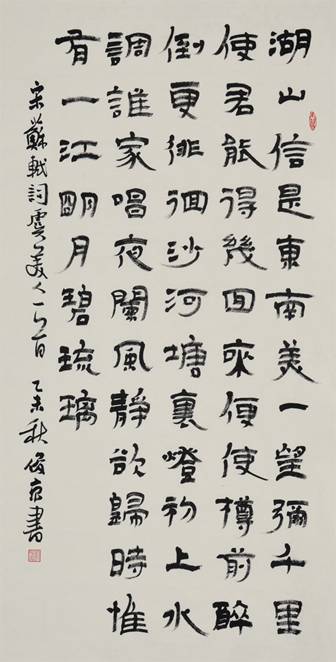 湖山信是東南美一望彌千里
使君能得幾回來便使樽前醉
倒更徘徊沙河塘裏燈初上水
調誰家唱夜闌風靜欲歸時惟
有一江明月碧琉璃
宋蘇軾詞虞美人一首 乙未秋俊書